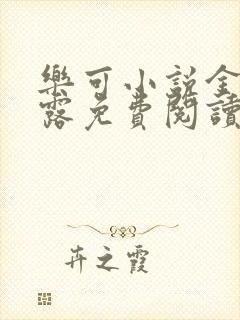 樂可小說全
露免費閱讀
卉之霞